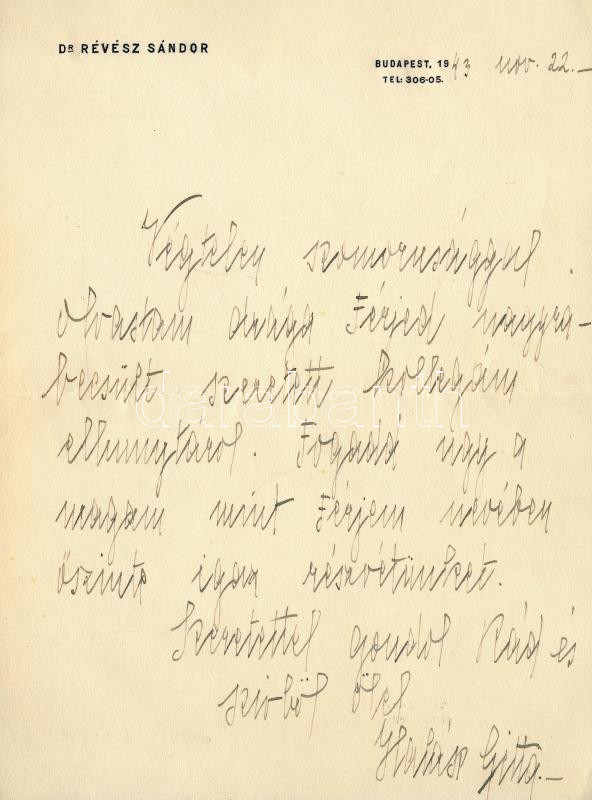 Dʀ RÉVÉSZ SÁNDOR
BUDAPEST, 1943 nov. 22.–
TEL: 306-05.
Végtelen szomorusággal
olvastam drága Férjed nagyra-
becsült szeretett kollegám
elhunytáról. Fogadd ugy a
magam mint Férjem nevében
őszinte igaz részvétünket.
Szeretettel gondol Rád és
szivből ölel
Halász Gitta–
darabanth